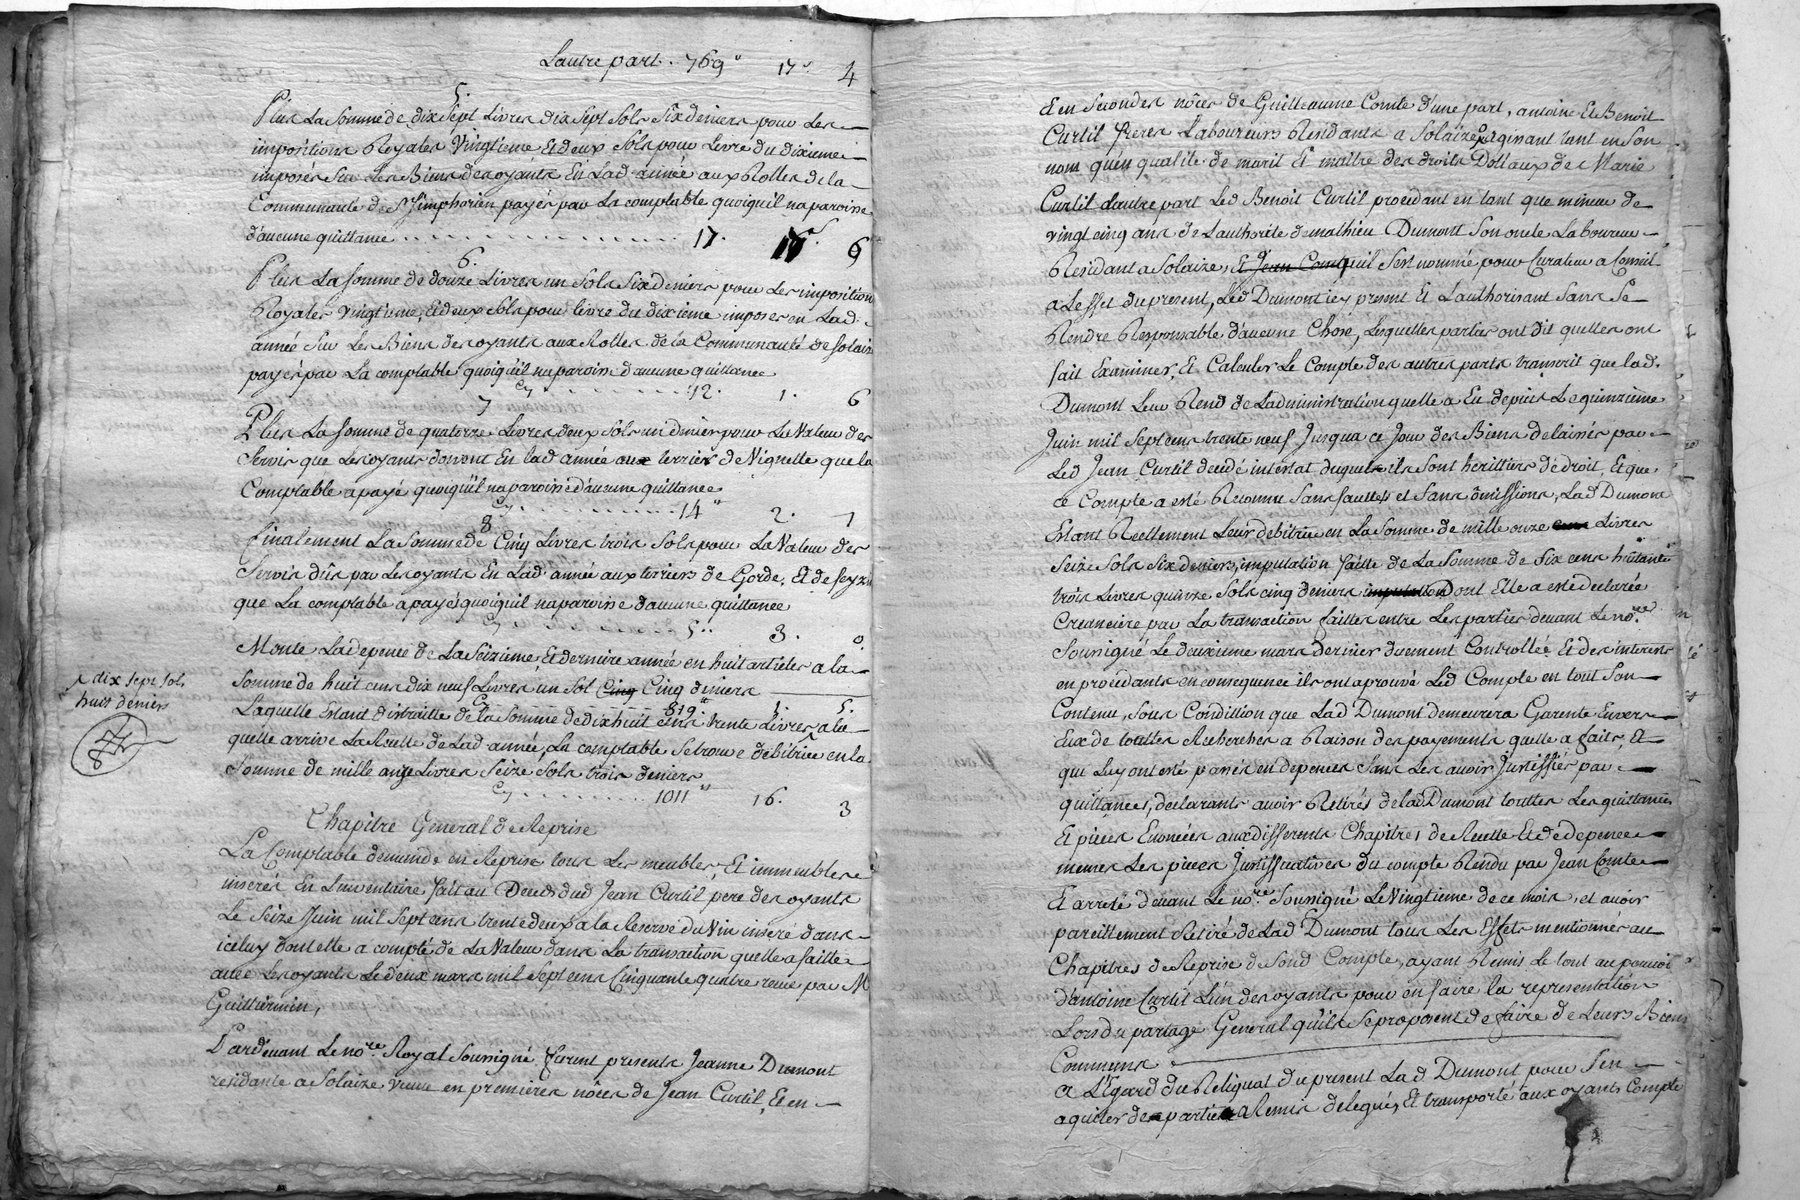 Lautre part . 769" 17s 4
5.
Plus La Somme de dix Sept Livres dix Sept Sols Six deniers pour Les
impositions Royales Vingtieme Et deux Sols pour Livre du dixieme
imposés Sur Les Biens des oyants En Lad année aux Rolles de la
Communauté de St Simphorien payés par La comptable quoiquil naparoisse
d'aucune quittance . . . . . 17. 17s 6
6.
Plus La Somme de douze Livres un Sols Six deniers pour Les imposition
Royales vingtieme, Et deux Sols pour livre du dixieme imposés en Lad.
année Sur Les Biens des oyants aux Rolles de la Communauté de Solaize
payés par La comptable quoiquil naparoisse d'aucune quittance
Cy . . . . . 12. 1. 6
7
Plus La Somme de quatorze Livres deux Sols un denier pour La Valeur des
Servis que Les oyants doivent En lad année aux terriers de Vignette que la
Comptable a payé quoiquil naparoisse d'aucune quittance
Cy . . . . . 14" 2. 1
8
Finalement La Somme de Cinq Livres trois Sols pour La Valeur des
Servis dûs par Les oyants En Lad année aux terriers de Gorde, Et de feyzin
que La comptable a payés quoiquil naparoisse daucune quittance
Cy . . . . . 5" 3. 0
Monte La depence de La Seizieme Et derniere année en huit articles a la
Somme de huit cens dix neuf Livres un Sol Cinq Cinq deniers
Cy . . . . . 819" 1. 5.
Laquelle Estant distraitte de la Somme de dix huit cens trente Livres a la
quelle arrive La Recette de Lad année, La comptable Se trouve débitrice en la
Somme de mille onze Livres Seize Sols trois deniers
Cy . . . . . 1011" 16. 3
dix sept sols
huit deniers
Chapitre General de Reprise
La Comptable demande en Reprise tous Les meubles, Et immeubles
inserés En Linventaire fait au Decès dud Jean Curtil pere des oyants
Le Seize Juin mil Sept cens trente deux a la Reserve du Vin inseré dans
iceluy dont elle a compté de La Valeur dans La transaction quelle a faitte
avec Les oyants Le deux mars mil Sept cens Cinquante quatre recue par M
Guillermin,
Pardevant Le nore Royal Soussigné furent presents Jeanne Dumont
residante a Solaize veuve en premieres nôces de Jean Curtil, Et en
Et en Secondes nôces de Guilleaume Comte d'une part, antoine Et Benoit
Curtil freres Laboureurs Residants a Solaize agissant tant en Son
nom qu'en qualité de marit Et maitre des droits Dottaux de Marie
Curtil dautre part Led Benoit Curtil procedant en tant que mineur de
vingt cinq ans de L'authorité de mathieu Dumont Son oncle Laboureur
Residant a Solaize, Et Jean Comte quil S'est nommé pour Curateur a Conseil
a Leffet du present, Led Dumont icy present Et L'authorisant Sans Se
Rendre Responsable d'aucune Chose, Lesquelles parties ont dit quelles ont
fait Examiner, Et Calculer Le Compte des autres parts transcrit que lad.
Dumont Leur Rend de Ladministration quelle a Eu depuis Le quinzieme
Juin mil Sept cens trente neuf Jusqua ce Jour des Biens delaissés par
Led Jean Curtil decedé intestat duquel ils Sont hérittiers dédroit, Et que
ce Compte a esté Reconnu Sans fauttes et Sans ômissions, Lad Dumont
Estant Réellement Leur débitrice en La Somme de mille onze Livres
Seize Sols Six deniers, imputation faitte de La Somme de Six cens huitante
trois Livres quinze Sols cinq deniers imputation Dont Elle a esté declarée
Creanciere par La transaction faittes entre Les parties devant Le nore.
Soussigné Le deuxieme mars dernier duement Controllée Et des interests
en procedants en consequence ils ont aprouvé Led Compte en tout Son
Contenu, Sous Condittion que Lad Dumont demeurera Garente Envers
Eux de touttes Recherches a Raison des payements quelle a faits, Et
qui Luy ont esté passés en depences Sans Les avoir Justiffiés par
quittances, declarants avoir Retirés de lad Dumont touttes Les quittances
Et pieces Enoncées aux differents Chapitres de Recette Et de depence
memes Les pieces Justifficatives du compte Rendu par Jean Comte
Et arreté devant Le nore. Soussigné Le Vingtieme de ce mois, et avoir
pareillement Retiré de Lad Dumont tous Les Effets mentionnés au
Chapitres de Reprise de Sond Compte, ayant Remis Le tout au pouvoir
d'antoine Curtil L'un des oyants pour en faire la representation
Lors du partage General qu'ils Se proposent de faire de Leurs Biens
Communs
a L'Egard du Reliquat du present Lad Dumont pour S'en
aquiter de partie a Remis delegués, Et transporté aux oyants Compte